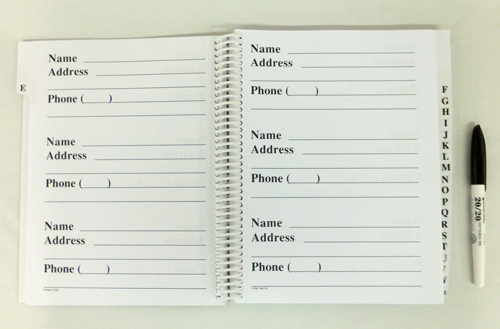 E
Name
Address
Phone ( )
Name
Address
Phone ( )
Name
Address
Phone ( )
Name
Address
Phone ( )
Name
Address
Phone ( )
Name
Address
Phone ( )
F
G
H
I
J
K
L
M
N
O
P
Q
R
S
T
20/20